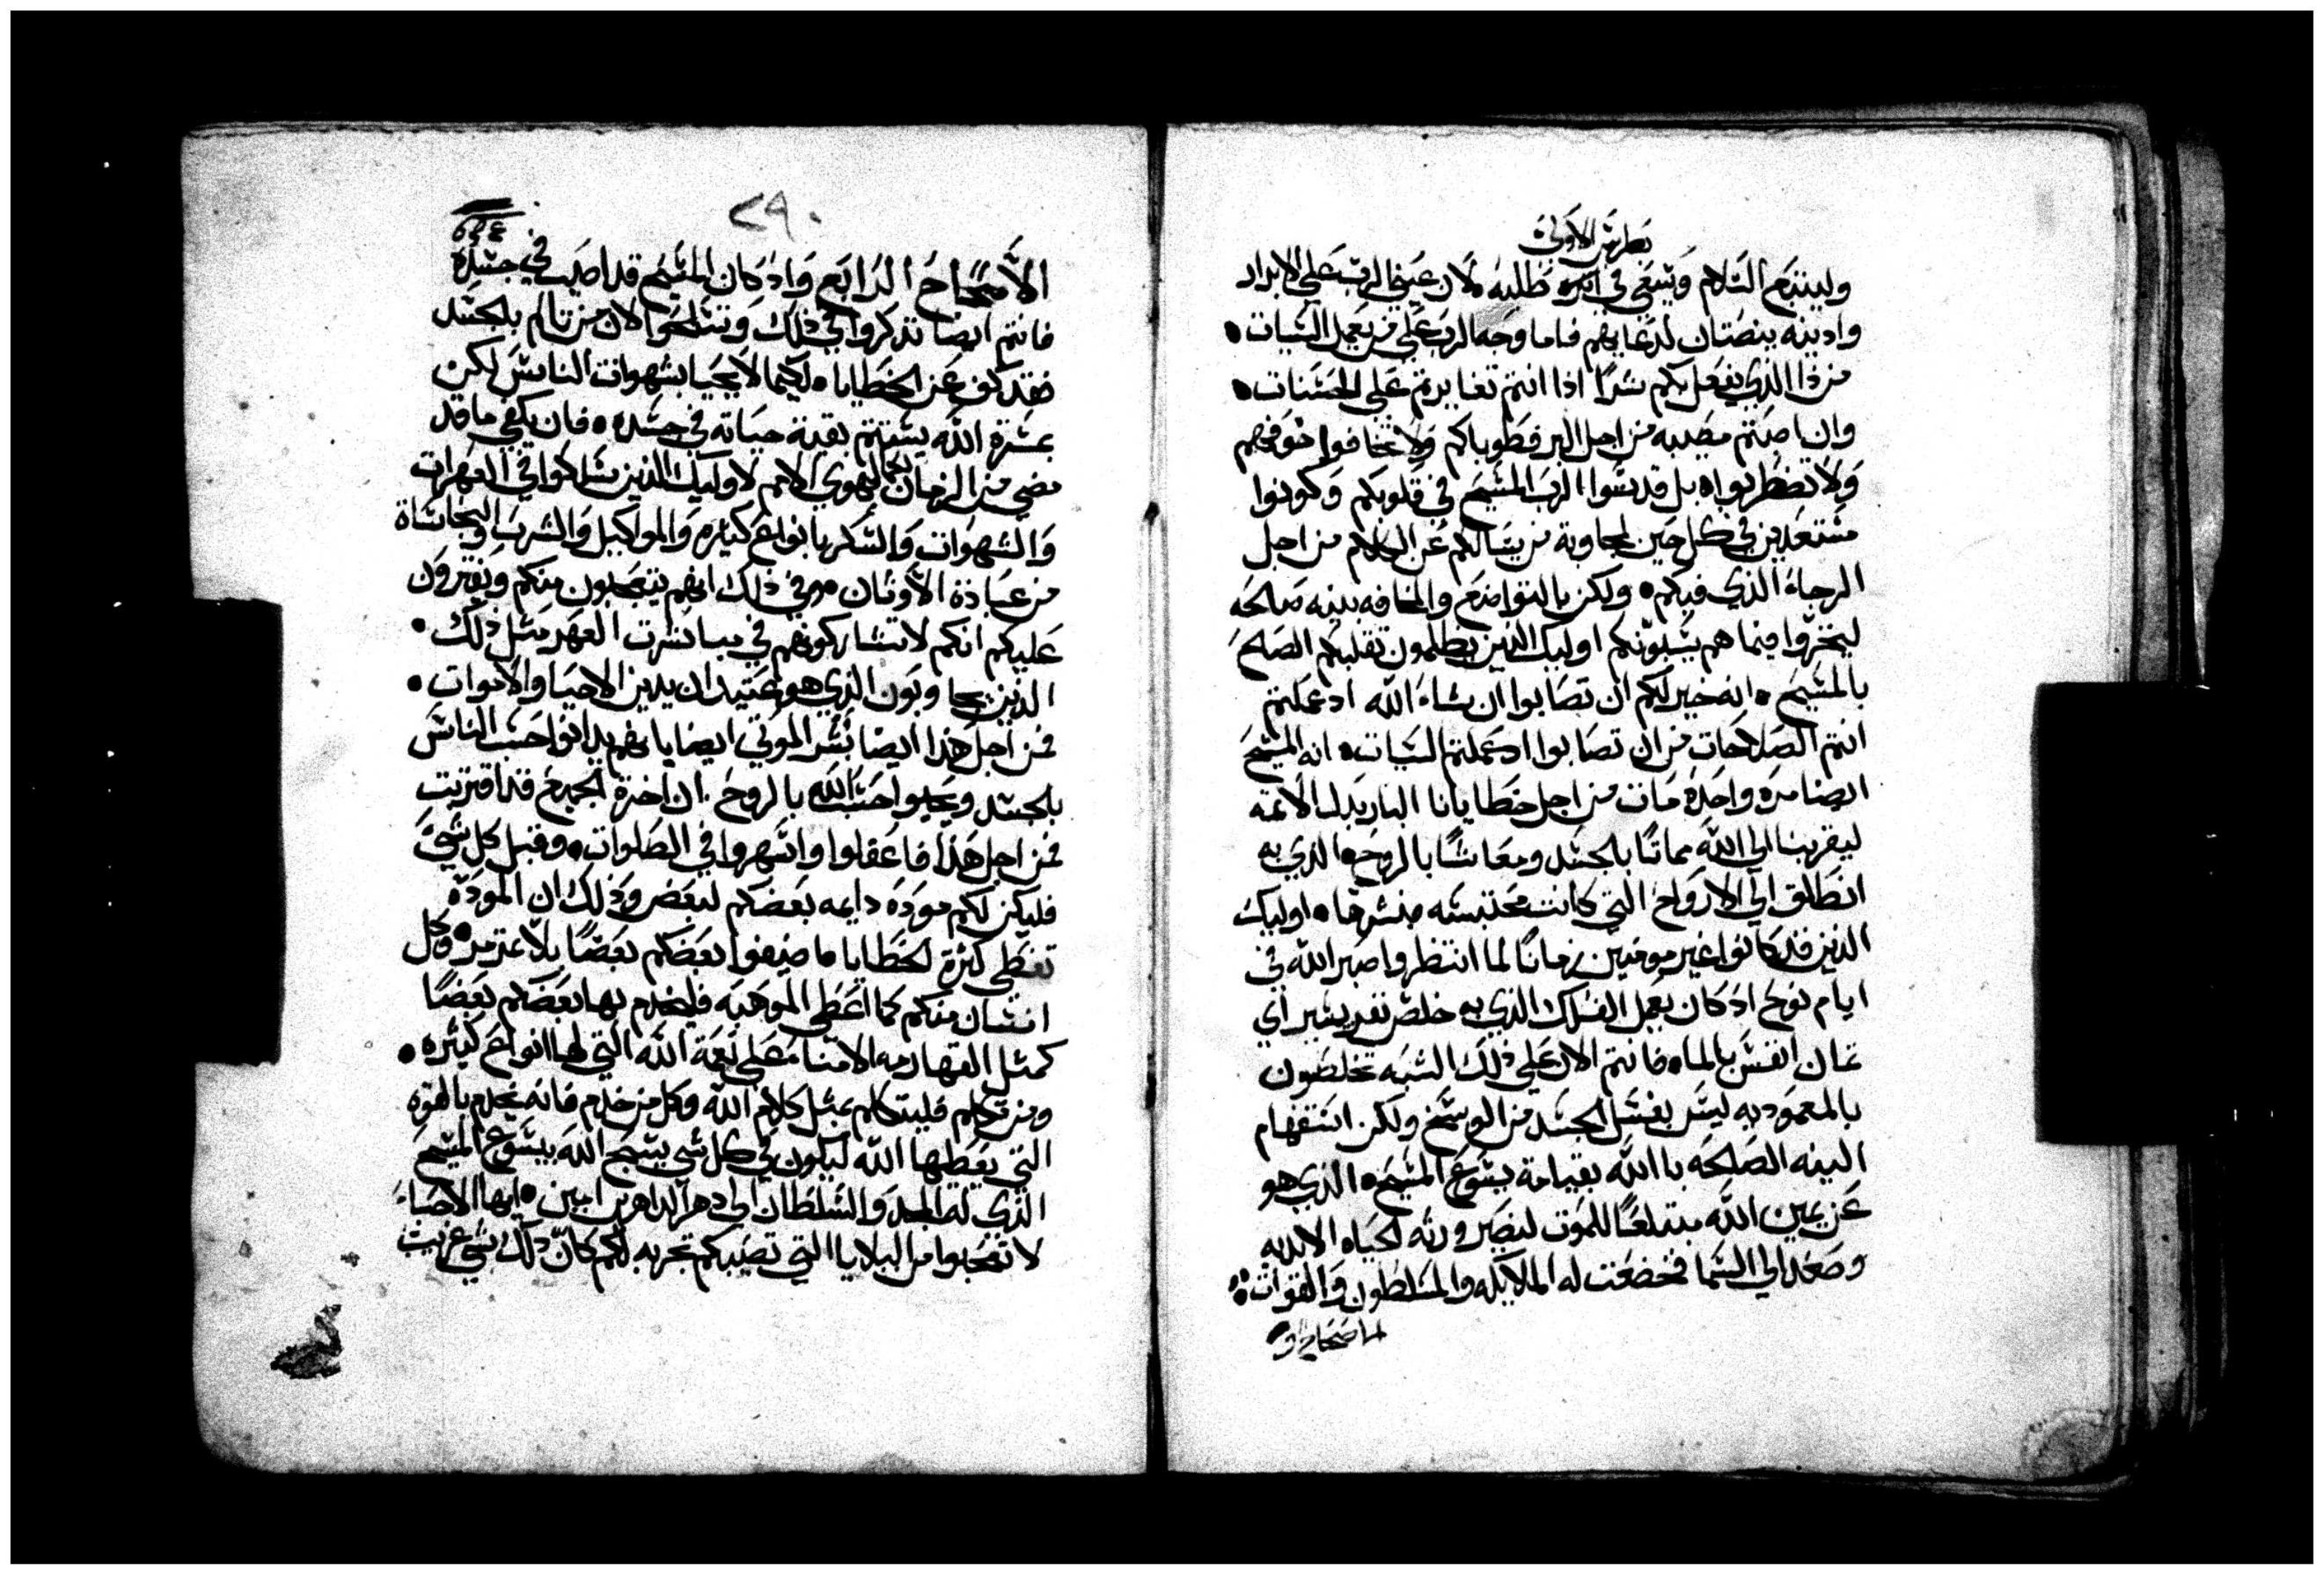 بطرس الاولي
وليبتغ السلام ويسعي في اثره طلبه لان عيني الرب علي الابرار
واذنيه ينصتان لدعايهم فاما وجه الرب علي من يعمل السيات •
من ذا الذي يفعل بكم شرا اذا انتم تغايرتم علي الحسنات •
وان اصبتم مصيبه من اجل البر فطوباكم ولا تخافوا خوفهم
ولا تضطربوا • بل قدسوا الرب المسيح في قلوبكم وكونوا
مستعدين في كل حين لمجاوبة من يسالكم عن الكلام من اجل
الرجاء الذي فيكم • ولكن بالتواضع والمخافه بنيه صالحه
ليخزوا فيما هم يسبونكم اوليك الذين يظلمون تقلبكم الصالح
بالمسيح • انه خير لكم ان تصابوا ان شاء الله اذ عملتم
انتم الصلاحات من ان تصابوا اذ عملتم السيات • انه المسيح
ايضا مره واحده مات من اجل خطايانا البار بدل الاثمه
ليقربنا الي الله مماتا بالجسد ومعاشا بالروح • الذي به
انطلق الي الارواح التي كانت محتبسه مبشرها • اوليك
الذين قد كانوا غير موقنين زمانا لما انتظروا صبر الله في
ايام نوح اذ كان يعمل الفلك الذي به خلص نفر يسير اي
ثمان انفس بالماء • فانتم الان علي ذلك الشبه تخلصون
بالمعموديه ليس بغسل الجسد من الوسخ ولكن استفهام
النيه الصالحه باالله بقيامة يسوع المسيح • الذي هو
عن يمين الله مبتلعا للموت لنصير ورثه لحياه الابديه
وصعد الي السما فخضعت له الملايكه والمسلطون والقوات
٢٩٠
الاصحاح الرابع واذ كان المسيح قد اصيب في جسده
فانتم ايضا تذكروا في ذلك وتسلحوا لان من تالم بالجسد
فقد كف عن الخطايا • لكيما لا يحيا بشهوات الناس لكن
بمسرة الله يستتم بقية حياته في جسده • فان يكفي ما قد
مضي من الزمان بهوي الامم لاوليك الذين سلكوا في العهرات
والشهوات والسكر بانواع كثيره والمواكيل والشرب والنجاساة
من عبادة الاوثان • وفي ذلك انهم يتعجبون منكم ويفترون
عليكم انكم لا تشاركونهم في مباشرت العهر مثل ذلك •
الذين يجاوبون الذي هو عتيد ان يدين الاحيا والاموات •
فمن اجل هذا ايضا بشر الموتي ايضا بانهم يدانوا حسب الناس
بالجسد ويحيوا حسب الله بالروح . ان اخرة الجميع قد اقتربت
فمن اجل هذا فاعقلوا واسهروا في الصلوات • وقبل كل شي
فليكن لكم مودة دايمه بعضكم لبعض وذلك ان المودة
تغطي كثرة الخطايا ما ضيفوا بعضكم بعضا بلا تذمر • وكل
انسان منكم كما اعطي الموهبه فليخدم بها بعضكم بعضا
كمثل القهارمه الامنا علي نعمة الله التي لها انواع كثيره •
ومن تكلم فليتكلم بمثل كلام الله وكل من خدم فانه يخدم بالقوه
التي يعطيها الله ليكون في كل شي يسبح الله بيسوع المسيح
الذي له المجد والسلطان الي دهر الداهرين امين • ايها الاحباء
لا تعجبوا من البلايا التي تصيبكم تجربه لكم كان ذلك شي غريب